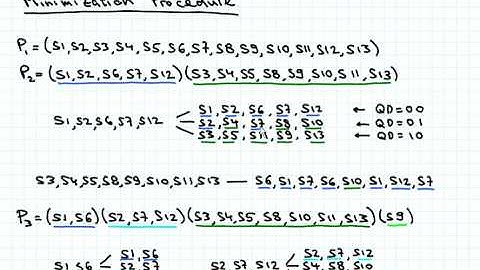 Minimization Procedure
P1 = (S1, S2, S3, S4, S5, S6, S7, S8, S9, S10, S11, S12, S13)
P2 = (S1, S2, S6, S7, S12)(S3, S4, S5, S8, S9, S10, S11, S13)
S1, S2, S6, S7, S12 < S1, S2, S6, S7, S12 ← QD=00
S2, S4, S7, S8, S10 ← QD=01
S3, S5, S11, S9, S13 ← QD=10
S3, S4, S5, S8, S9, S10, S11, S13 — S6, S1, S7, S6, S10, S1, S12, S7
P3 = (S1, S6)(S2, S7, S12)(S3, S4, S5, S8, S10, S11, S13)(S9)
S1, S6 < S1, S6 S2, S7, S12 < S2, S7, S12
S2, S7 S4, S8, S10